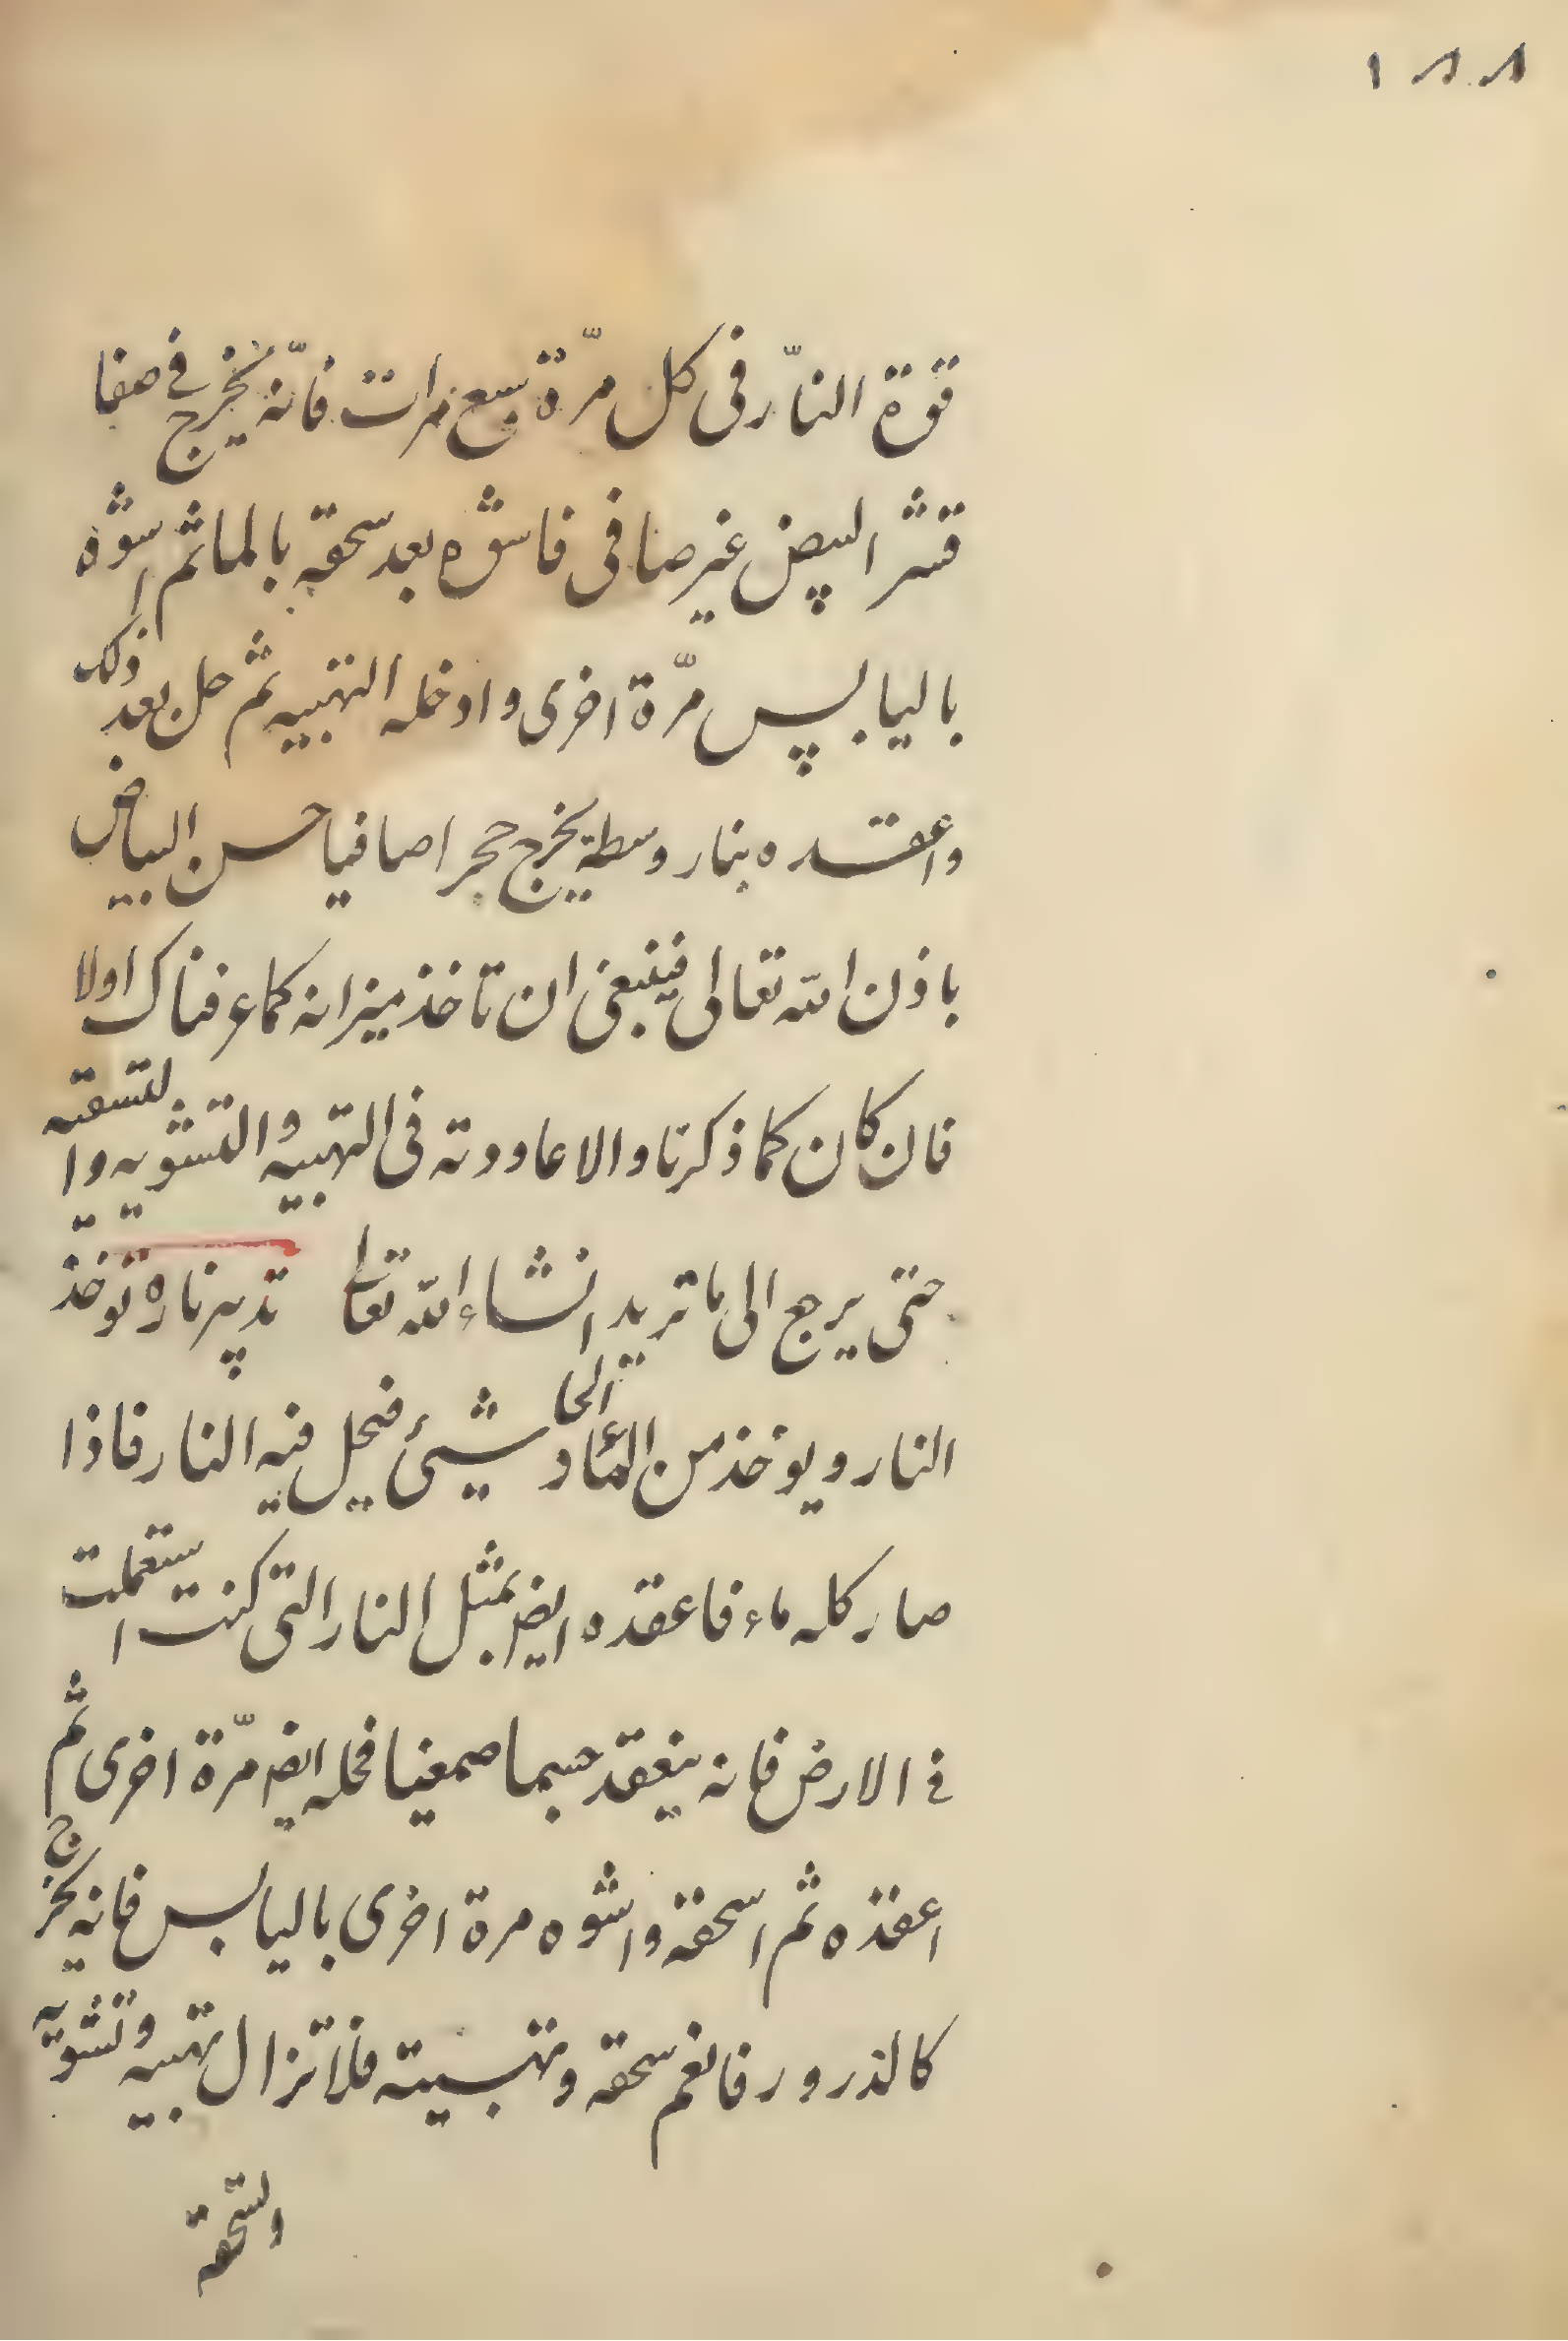 ١٨٨
قوة النّار فى كل مرّة وسع مرات فانّه يخرج فى صفا
قشر البيض غير صافى فاشوه بعد سحقه بالماثم اشوه
باليابس مرّة اخرى وادخله التهبيه ثم حل بعد ذلك
واعقده بنار وسطية يخرج حجرا صافيا حسن البياض
باذن الله تعالى فينبغى ان تاخذ ميزانه كما عرفناك اولا
فان كان كما ذكرنا والا عاودته فى التهبيه والتشويه والتسقيه
حتى يرجع الى ما تريد انشاء الله تعالى تدبير ناره تؤخذ
النار ويؤخذ من الماء الحاد شيئ فيحل فيه النار فاذا
صار كله ماء فاعقده ايضا بمثل النار التى كنت استعملت
فى الارض فانه ينعقد جسما صمغيا فحله ايضا مرّة اخرى ثم
اعقده ثم اسحقه واشوه مرة اخرى باليابس فانه يخرج
كالذرور فانعم سحقه وتهبيته فلا تزال تهبيه وتشويه
وتسحقه